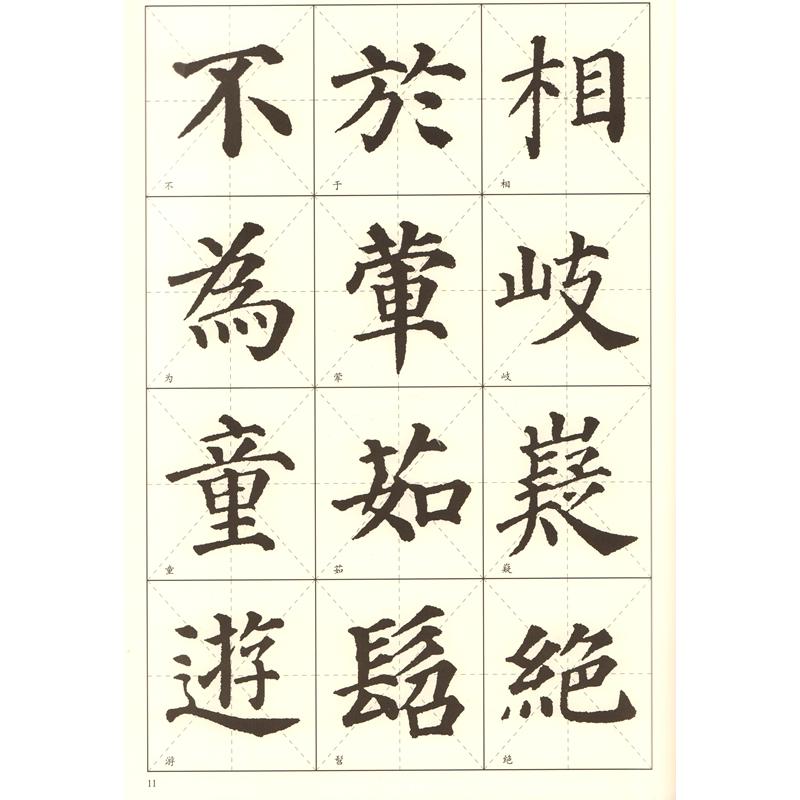 相岐嶷絕
相岐嶷绝
於葷茹髫
于荤茹髫
不為童遊
不为童游
11